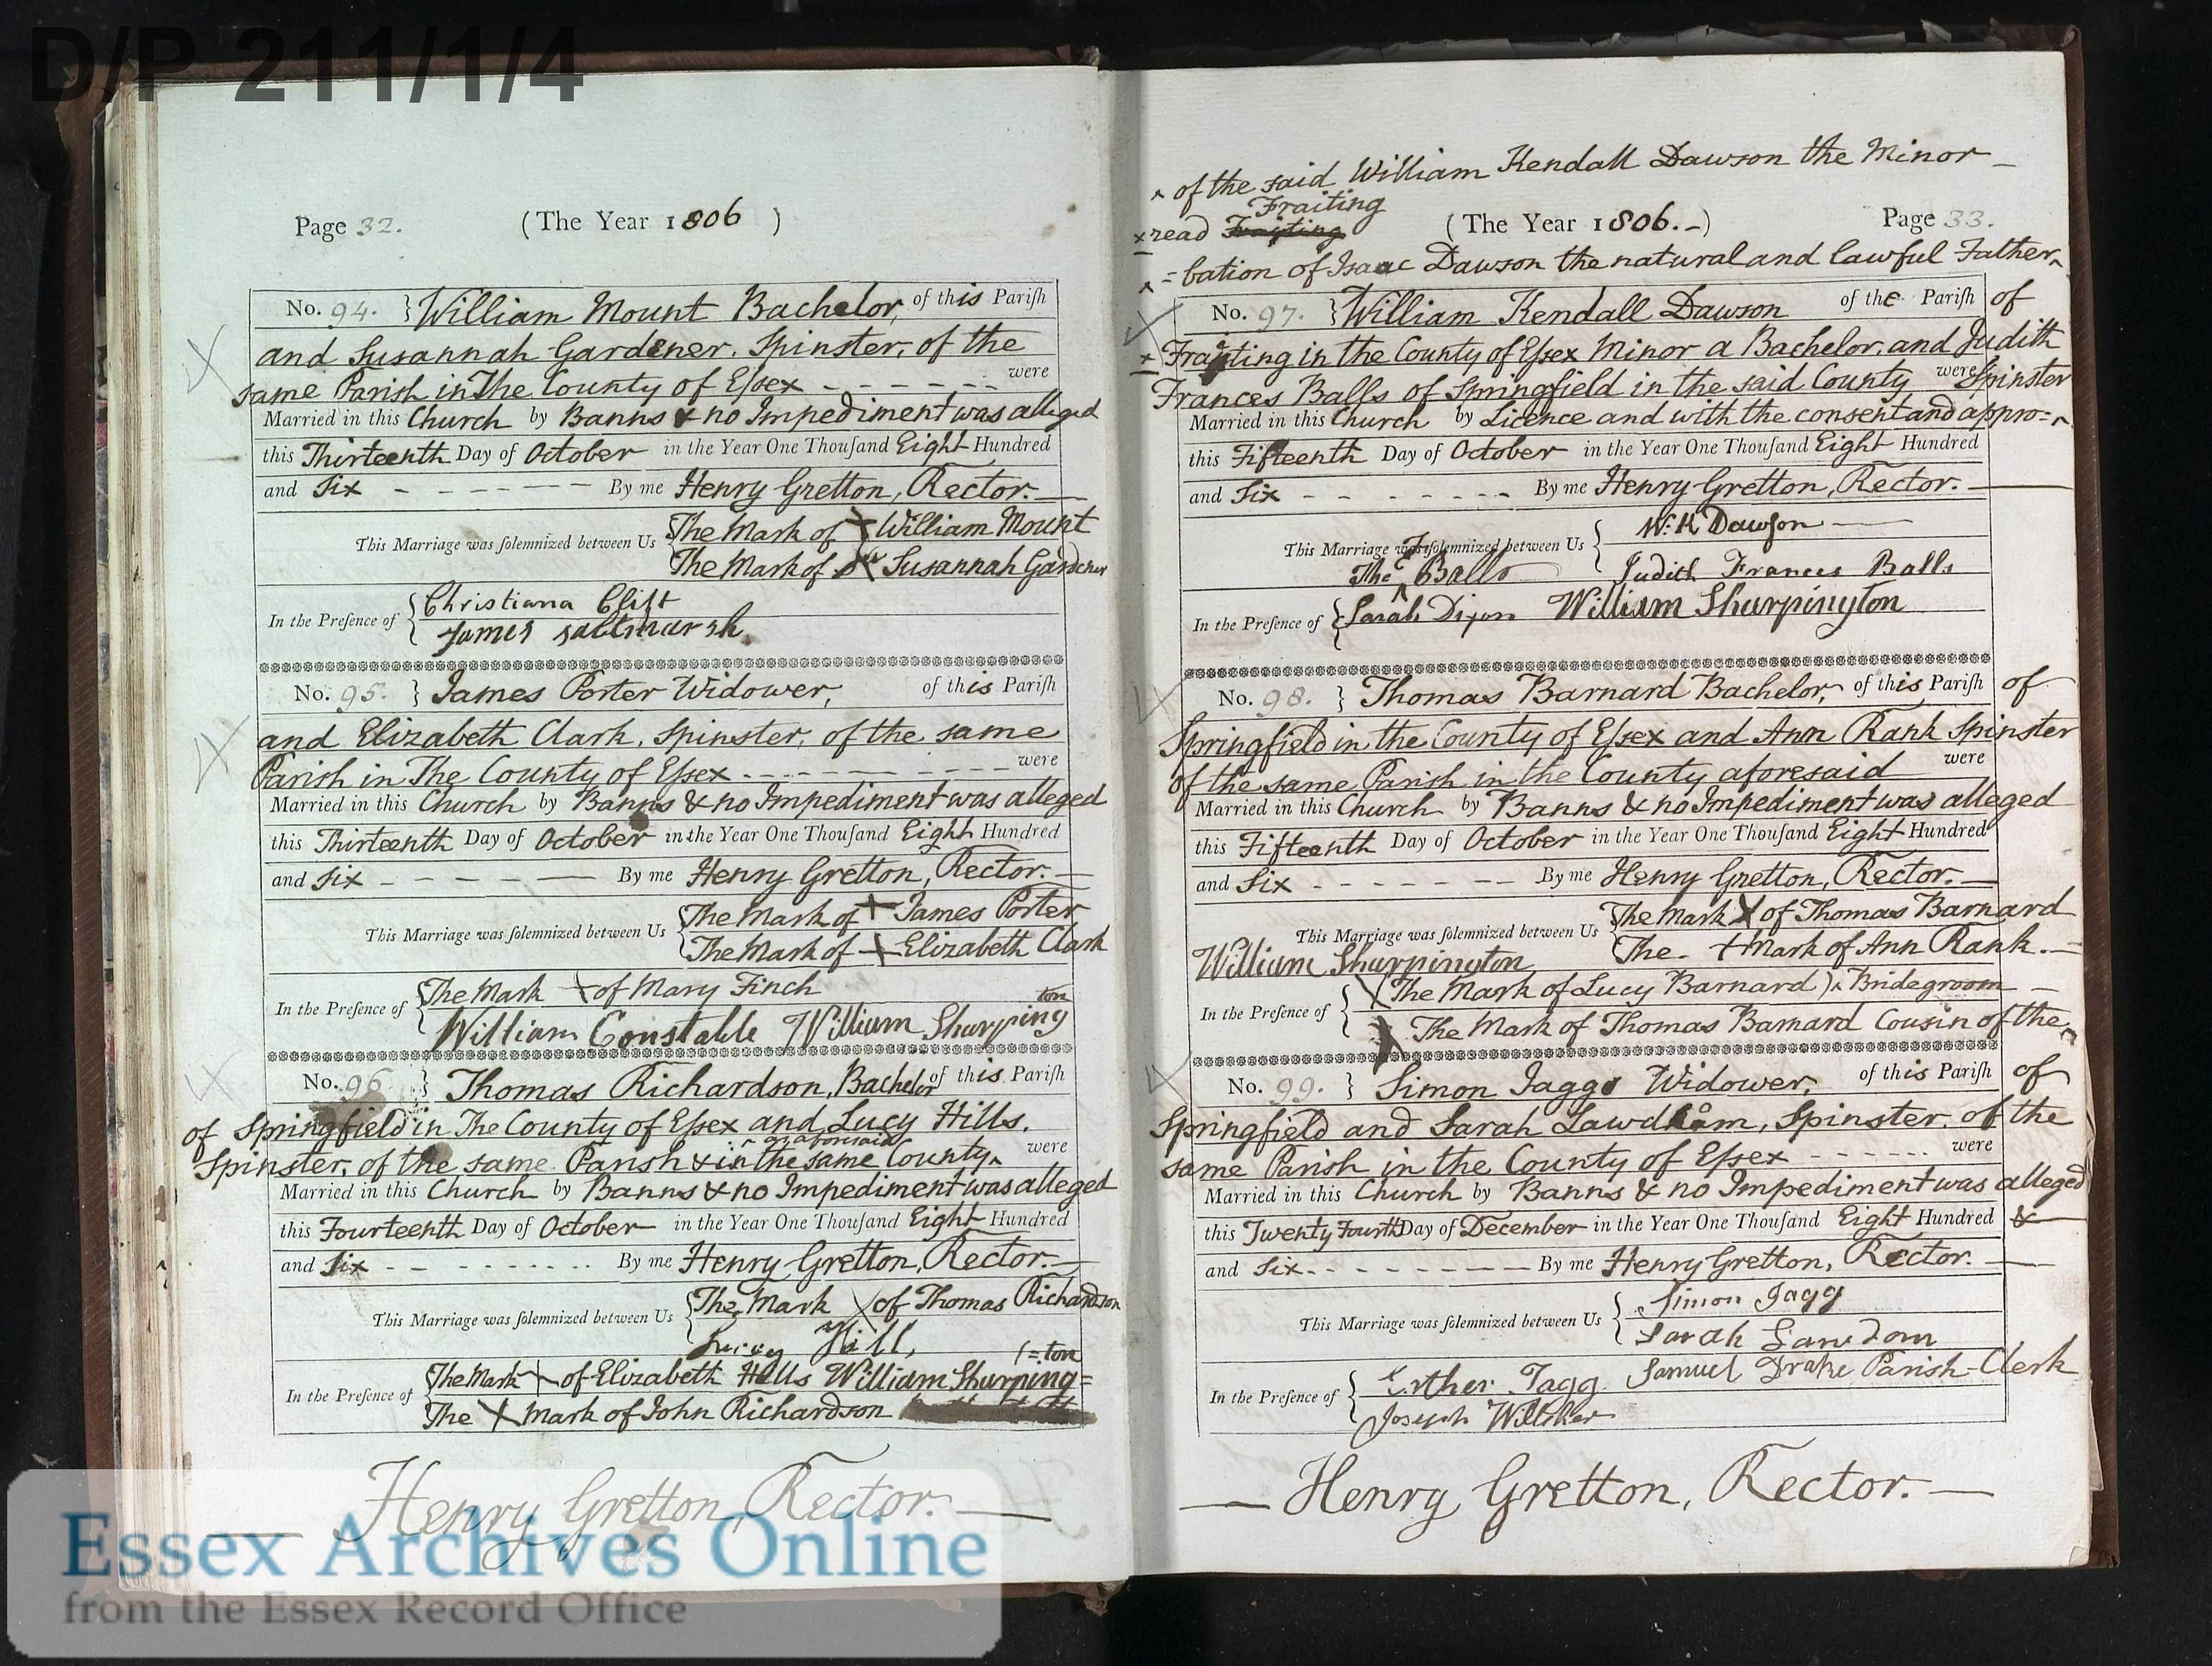 D/P 211/1/4
Page 32. (The Year 1806 )
No. 94. } William Mount Bachelor, of this Parish
and Susannah Gardener, Spinster, of the
same Parish in The County of Essex - - - - - - were
Married in this Church by Banns & no Impediment was alleged
this Thirteenth Day of October in the Year One Thousand Eight Hundred
and Six - - - - - - By me Henry Gretton, Rector.
This Marriage was solemnized between Us { The Mark of + William Mount
The Mark of X Susannah Gardener
In the Presence of { Christiana Clift
James Saltmarsh.
No. 95. } James Porter Widower, of this Parish
and Elizabeth Clark, Spinster, of the same
Parish in The County of Essex - - - - - - were
Married in this Church by Banns & no Impediment was alleged
this Thirteenth Day of October in the Year One Thousand Eight Hundred
and Six - - - - - - By me Henry Gretton, Rector.
This Marriage was solemnized between Us { The Mark of + James Porter
The Mark of + Elizabeth Clark
In the Presence of { The Mark + of Mary Finch
William Constable William Shurpington
No. 96 } Thomas Richardson, Bachelor of this Parish
of Springfield in The County of Essex and Lucy Hills.
Spinster, of the same Parish & in the same County aforesaid were
Married in this Church by Banns & no Impediment was alleged
this Fourteenth Day of October in the Year One Thousand Eight Hundred
and Six - - - - - - By me Henry Gretton, Rector.
This Marriage was solemnized between Us { The Mark X of Thomas Richardson
Lucy Hill,
In the Presence of { The Mark + of Elizabeth Hills William Shurping=
(=ton
The X Mark of John Richardson
Henry Gretton, Rector.
Essex Archives Online
from the Essex Record Office
^ of the said William Kendall Dawson the Minor
Fraiting
x read Frayting (The Year 1806.-) Page 33.
^ =bation of Isaac Dawson the natural and lawful Father ^
No. 97. } William Kendall Dawson of the Parish of
x Fraiting in the County of Essex Minor a Bachelor, and Judith
Frances Balls of Springfield in the said County were Spinster
Married in this Church by Licence and with the consent and appro= ^
this Fifteenth Day of October in the Year One Thousand Eight Hundred
and Six - - - - - - By me Henry Gretton, Rector.
This Marriage was solemnized between Us { W. K Dawson
Judith Frances Balls
Thos F Balls
In the Presence of { Sarah Dixon William Shurpington
No. 98. } Thomas Barnard Bachelor, of this Parish of
Springfield in the County of Essex and Ann Rank Spinster
of the same Parish in the County aforesaid were
Married in this Church by Banns & no Impediment was alleged
this Fifteenth Day of October in the Year One Thousand Eight Hundred
and Six - - - - - - By me Henry Gretton, Rector.
This Marriage was solemnized between Us { The Mark X of Thomas Barnard
The + Mark of Ann Rank.
William Shurpington
In the Presence of { X The Mark of Lucy Barnard ) ^ Bridegroom
X The Mark of Thomas Barnard Cousin of the ^
No. 99. } Simon Jaggs Widower, of this Parish of
Springfield and Sarah Lawdham, Spinster, of the
same Parish in the County of Essex - - - - - - were
Married in this Church by Banns & no Impediment was alleged
this Twenty Fourth Day of December in the Year One Thousand Eight Hundred &
and Six - - - - - - By me Henry Gretton, Rector.
This Marriage was solemnized between Us { Simon Jagg
Sarah Lawdom
In the Presence of { Esther Jagg Samuel Drake Parish Clerk
Joseph Wiltsher
Henry Gretton, Rector.